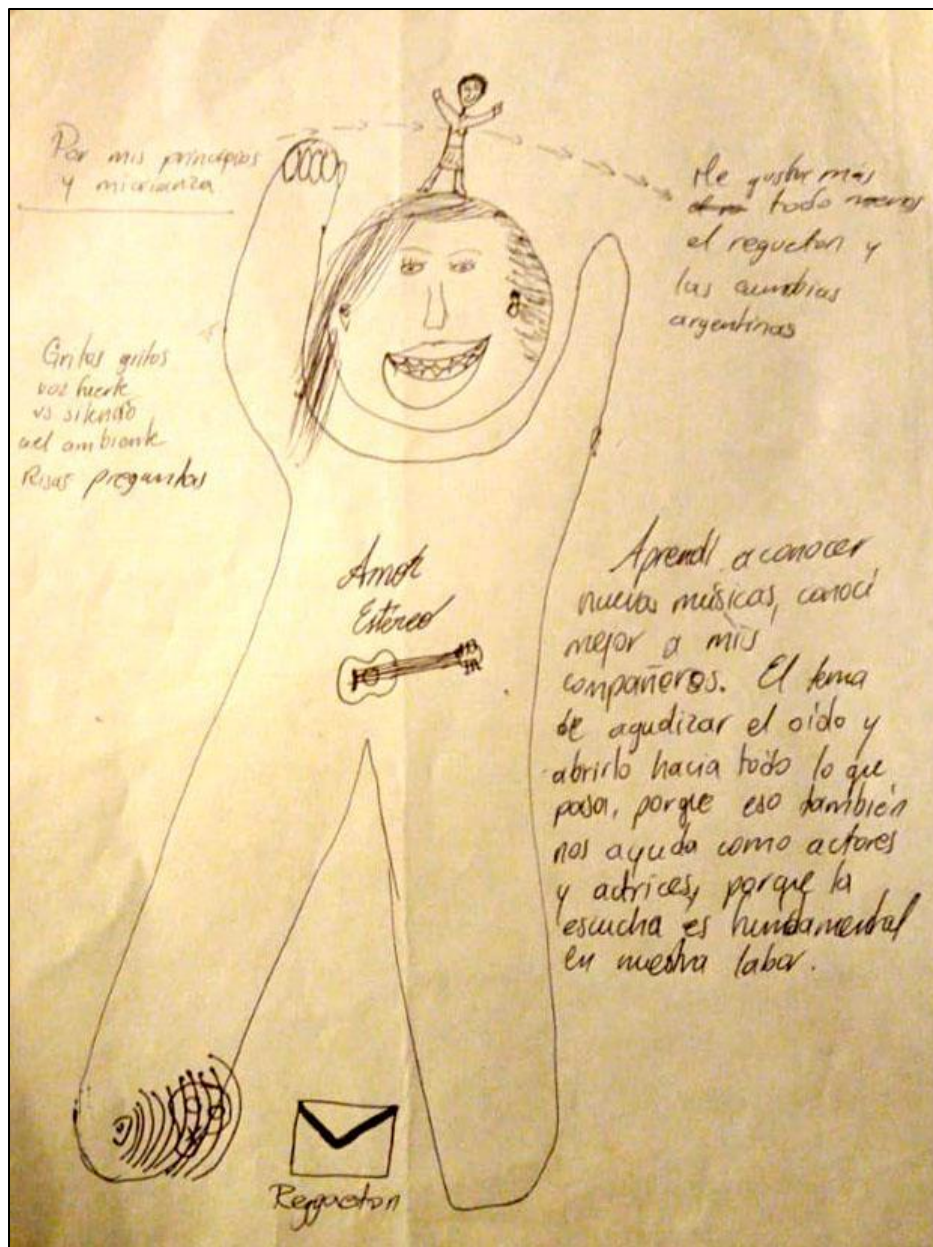 Por mis principios
y micrianza
Me gustar más
todo menos
el regueton y
las cumbias
argentinas
Gritos gritos
voz fuerte
vs silencio
del ambiente
Risas preguntas
Amor
Estéreo
Aprendí a conocer
nuevas músicas, conocí
mejor a mis
compañeros. El tema
de agudizar el oído y
abrirlo hacia todo lo que
pasa, porque eso también
nos ayuda como actores
y actrices, porque la
escucha es fundamental
en nuestra labor.
Reggaeton